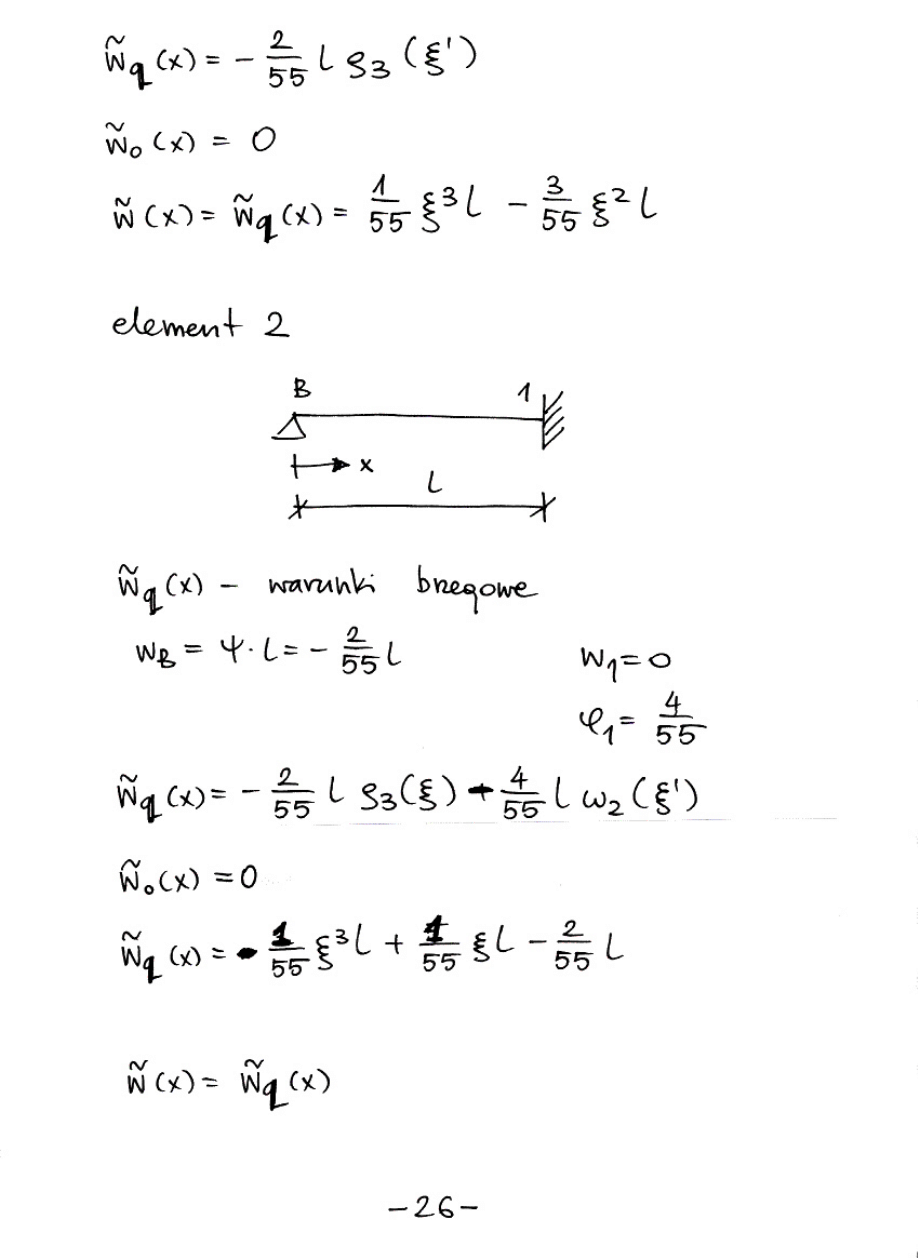 w̃q (x) = - 2/55 l ρ3 (ξ')
w̃o (x) = 0
w̃ (x) = w̃q (x) = 1/55 ξ³ l - 3/55 ξ² l
element 2
B 1
x
L
w̃q (x) - warunki brzegowe
wB = ψ · l = - 2/55 l w1 = 0
φ1 = 4/55
w̃q (x) = - 2/55 l ρ3 (ξ) + 4/55 l ω2 (ξ')
w̃o (x) = 0
w̃q (x) = - 1/55 ξ³ l + 1/55 ξ l - 2/55 l
w̃ (x) = w̃q (x)
-26-